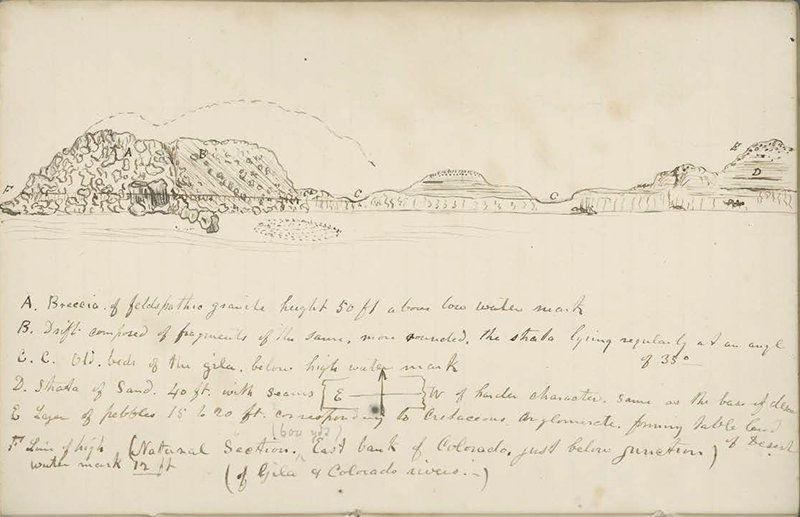 A
B
E
F
C
C
D
A. Breccia of feldspathic granite height 50 ft above low water mark
B. Drift composed of fragments of the same, more rounded, the strata lying regularly at an angle of 35°
C. C. Old beds of the gila, below high water mark
D. Strata of Sand. 40 ft. with seams of harder character. same as the base of
E W
E Layer of pebbles 15 to 20 ft. corresponding to Cretaceous conglomerate forming table land of Desert
F Line of high water mark 12 ft
(Natural Section. East bank of Colorado, just below junction)
(of Gila & Colorado rivers.-)